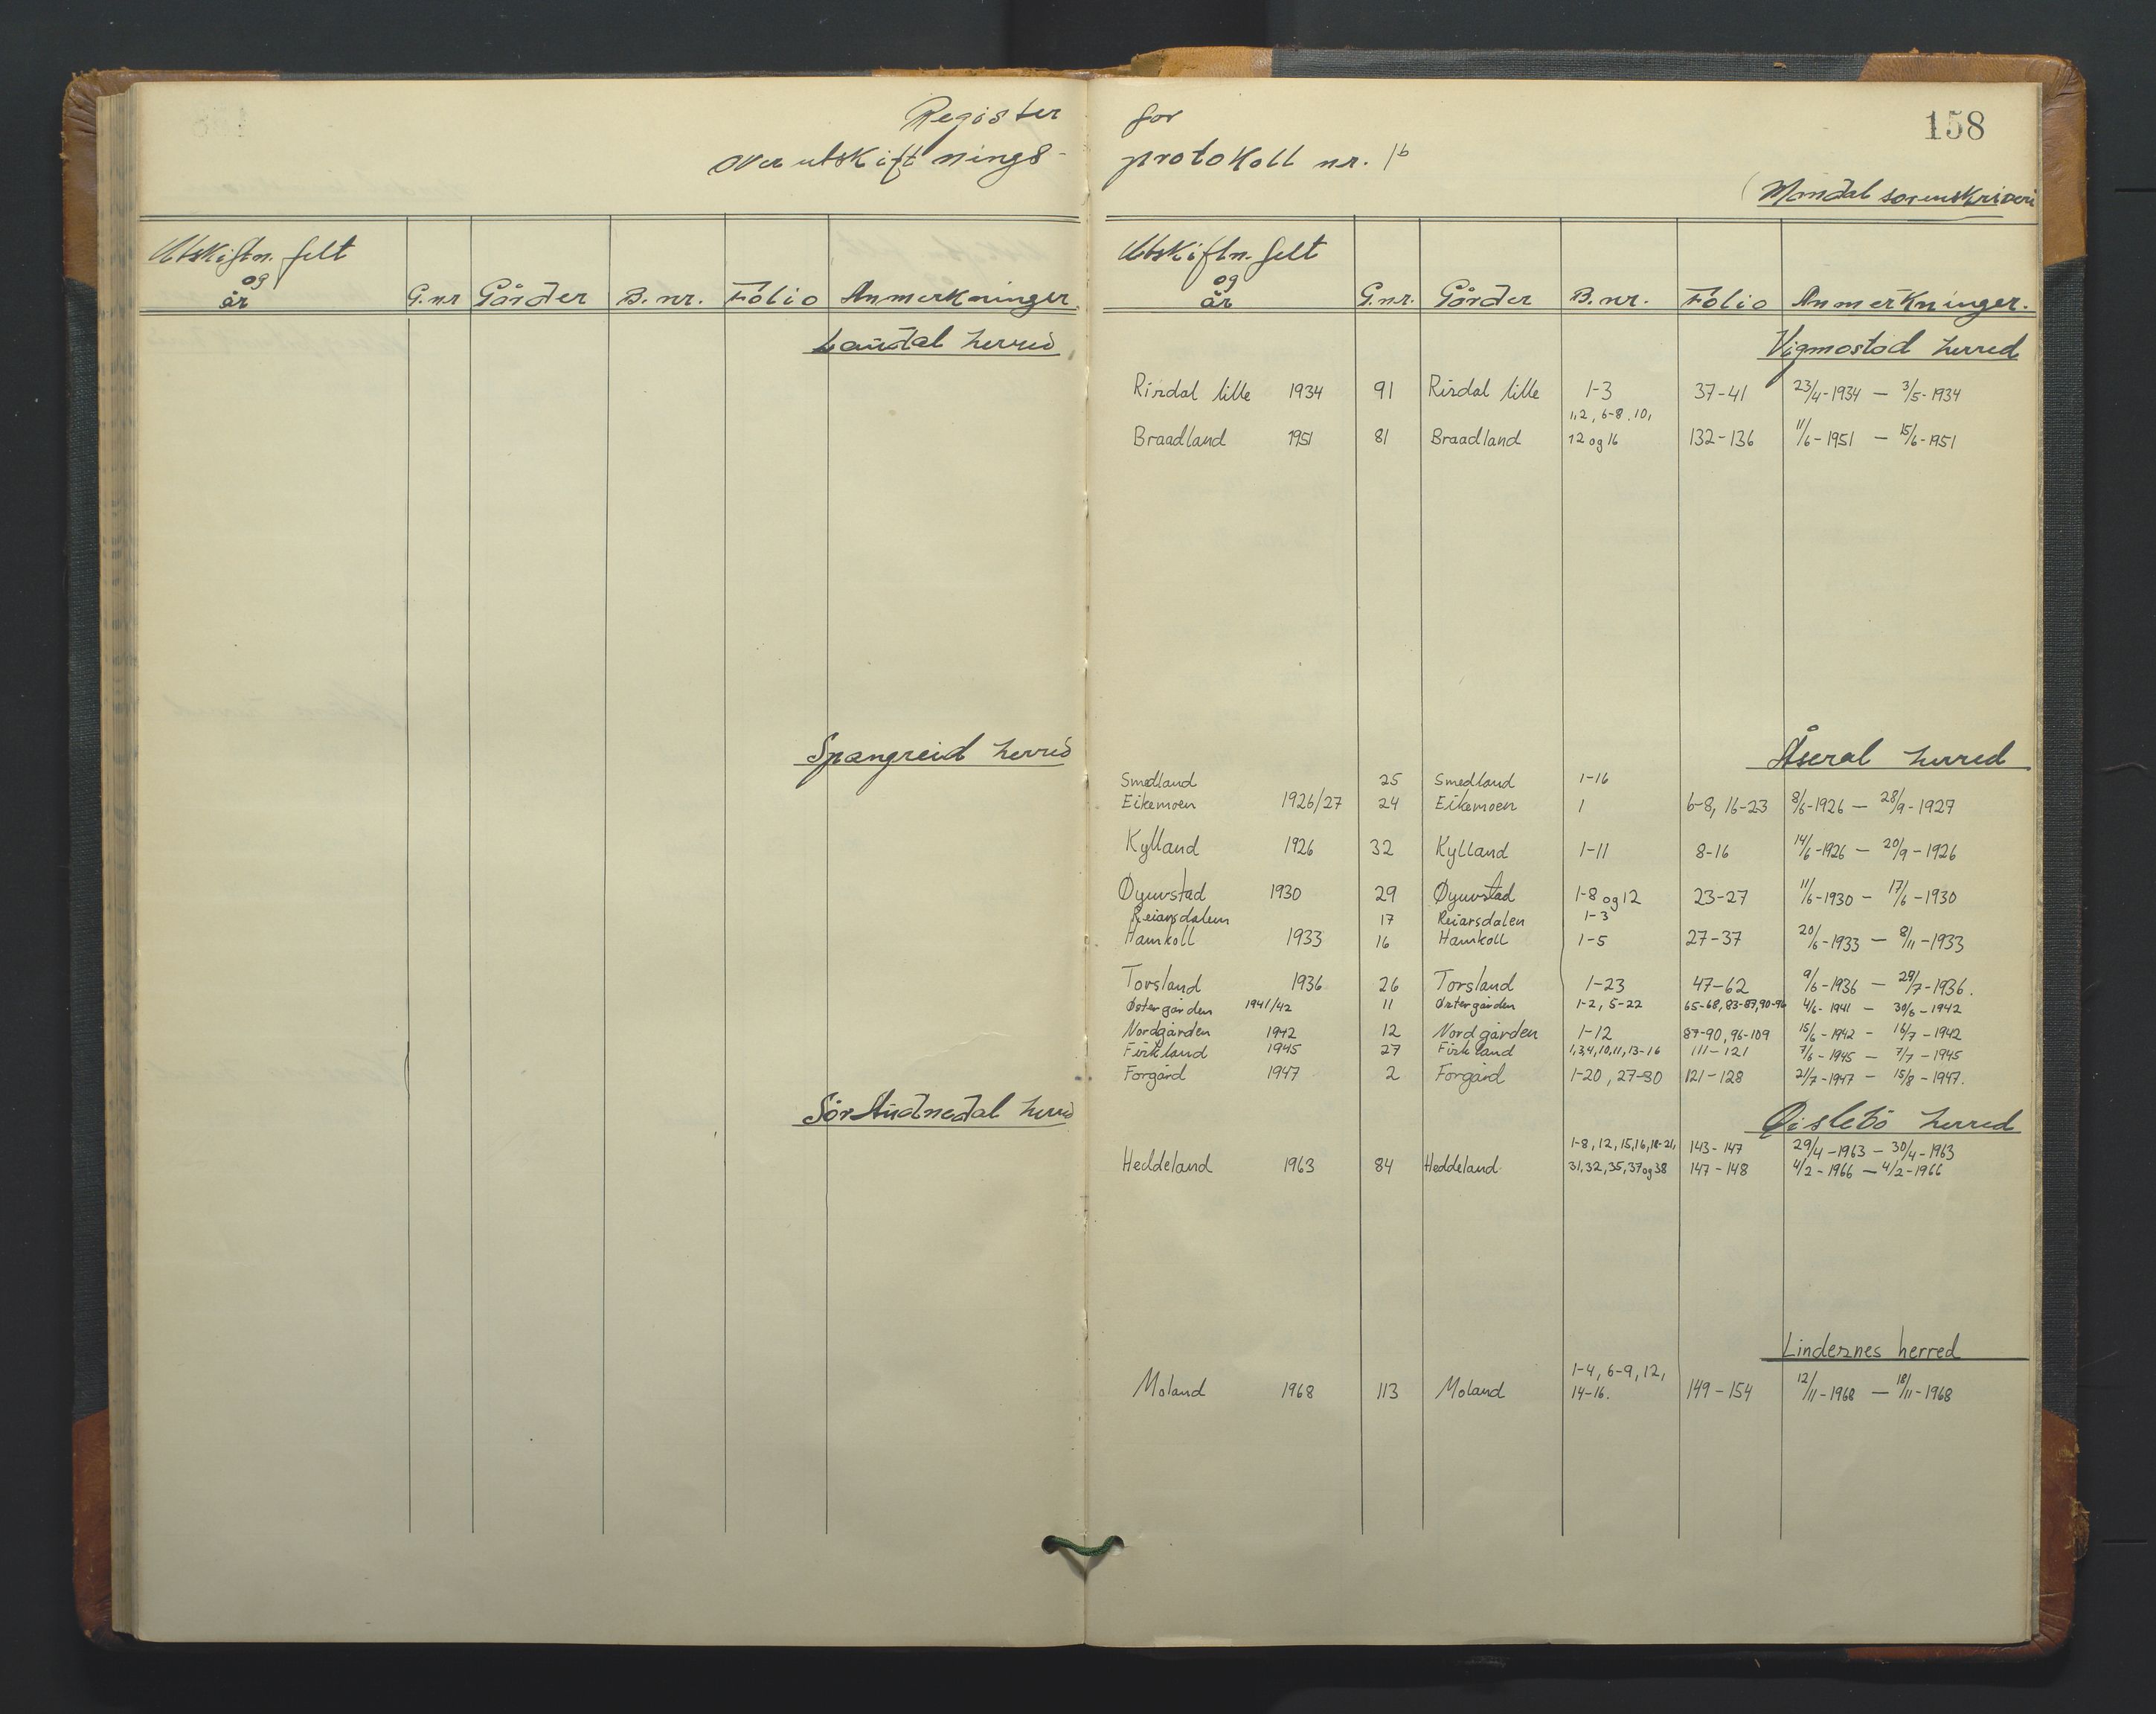 Register for
over utskiftnings- protokoll nr. 1b
158
(Mandal sorenskriveri
Utskiftn. felt
og
år G.nr Gårder B.nr. Folio Anmerkninger.
Laudal herred
Spangreid herred
Sør Audnedal herred
Utskiftn. felt
og
år G.nr. Gårder B.nr. Folio Anmerkninger.
Vigmostad herred
Risdal lille 1934 91 Risdal lille 1-3 37-41 23/4-1934 — 3/5-1934
1,2, 6-8, 10,
Braadland 1951 81 Braadland 12 og 16 132-136 11/6-1951 — 15/6-1951
Åseral herred
Smedland 25 Smedland 1-16
Eikemoen 1926/27 24 Eikemoen 1 6-8, 16-23 8/6-1926 — 28/9-1927
Kylland 1926 32 Kylland 1-11 8-16 14/6-1926 — 20/9-1926
Øyuvstad 1930 29 Øyuvstad 1-8 og 12 23-27 11/6-1930 — 17/6-1930
Reiarsdalen 17 Reiarsdalen 1-3
Hamkoll 1933 16 Hamkoll 1-5 27-37 20/6-1933 — 8/11-1933
Torsland 1936 26 Torsland 1-23 47-62 9/6-1936 — 29/7-1936.
Østergården 1941/42 11 Østergården 1-2, 5-22 65-68, 83-87, 90-96 4/6-1941 — 30/6-1942
Nordgården 1942 12 Nordgården 1-12 87-90, 96-109 15/6-1942 - 16/7-1942
Firkland 1945 27 Firkland 1,3,4,10,11,13-16 111-121 7/6-1945 — 7/7-1945
Forgård 1947 2 Forgård 1-20, 27-30 121-128 2/7-1947 — 15/8-1947.
Øislebø herred
1-8, 12, 15,16,18-21, 143-147 29/4-1963 — 30/4-1963
Heddeland 1963 84 Heddeland 31,32,35,37 og 38 147-148 4/2-1966 — 4/2-1966
Lindesnes herred
1-4, 6-9, 12,
Moland 1968 113 Moland 14-16. 149-154 12/11-1968 — 18/11-1968